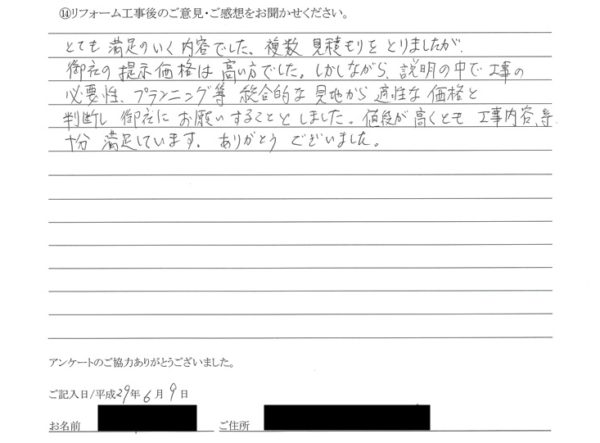 ⑭リフォーム工事後のご意見・ご感想をお聞かせください。
とても満足のいく内容でした。複数見積もりをとりましたが、
御社の提示価格は高い方でした。しかしながら、説明の中で工事の
必要性、プランニング等 総合的な見地から適性な価格と
判断し 御社にお願いすることとしました。値段が高くとも 工事内容、等
十分 満足しています。ありがとう ございました。
アンケートのご協力ありがとうございました。
ご記入日/平成29年6月9日
お名前 ご住所